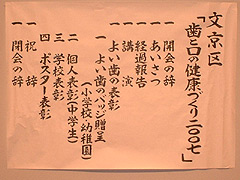 文京区
「歯と口の健康づくり二〇〇七」
一 開会の辞
一 あいさつ
一 経過報告
一 講演
一 よい歯の表彰
一 よい歯のバッジ贈呈
小学校・幼稚園)
二 個人表彰(中学生)
三 学校表彰
四 ポスター表彰
一 祝辞
一 閉会の辞